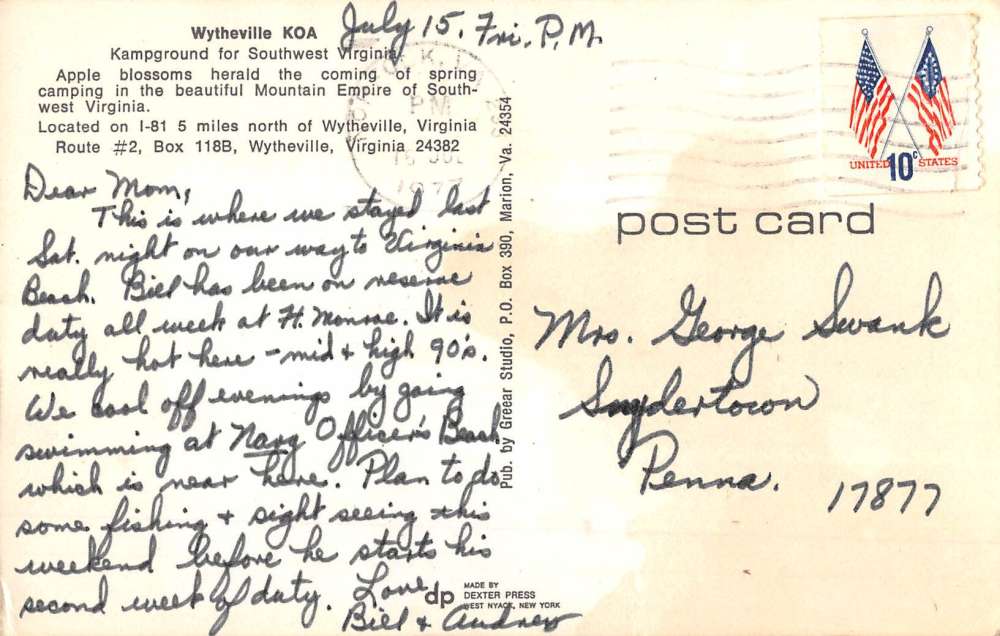 Wytheville KOA
Kampground for Southwest Virginia
Apple blossoms herald the coming of spring
camping in the beautiful Mountain Empire of South-
west Virginia.
Located on I-81 5 miles north of Wytheville, Virginia
Route #2, Box 118B, Wytheville, Virginia 24382
July 15, Fri. P.M.
Dear Mom,
This is where we stayed last
Sat. night on our way to Virginia
Beach. Bill has been on reserve
duty all week at Ft. Monroe. It is
really hot here - mid + high 90's.
We cool off evenings by going
swimming at Navy Officer's Beach
which is near here. Plan to do
some fishing + sight seeing this
weekend before he starts his
second week of duty. Love,
Bill + Audrey
Pub. by Greear Studio, P.O. Box 390, Marion, Va. 24354
dp
MADE BY
DEXTER PRESS
WEST NYACK, NEW YORK
PM
1977
UNITED 10c STATES
post card
Mrs. George Swank
Snydertown
Penna. 17877